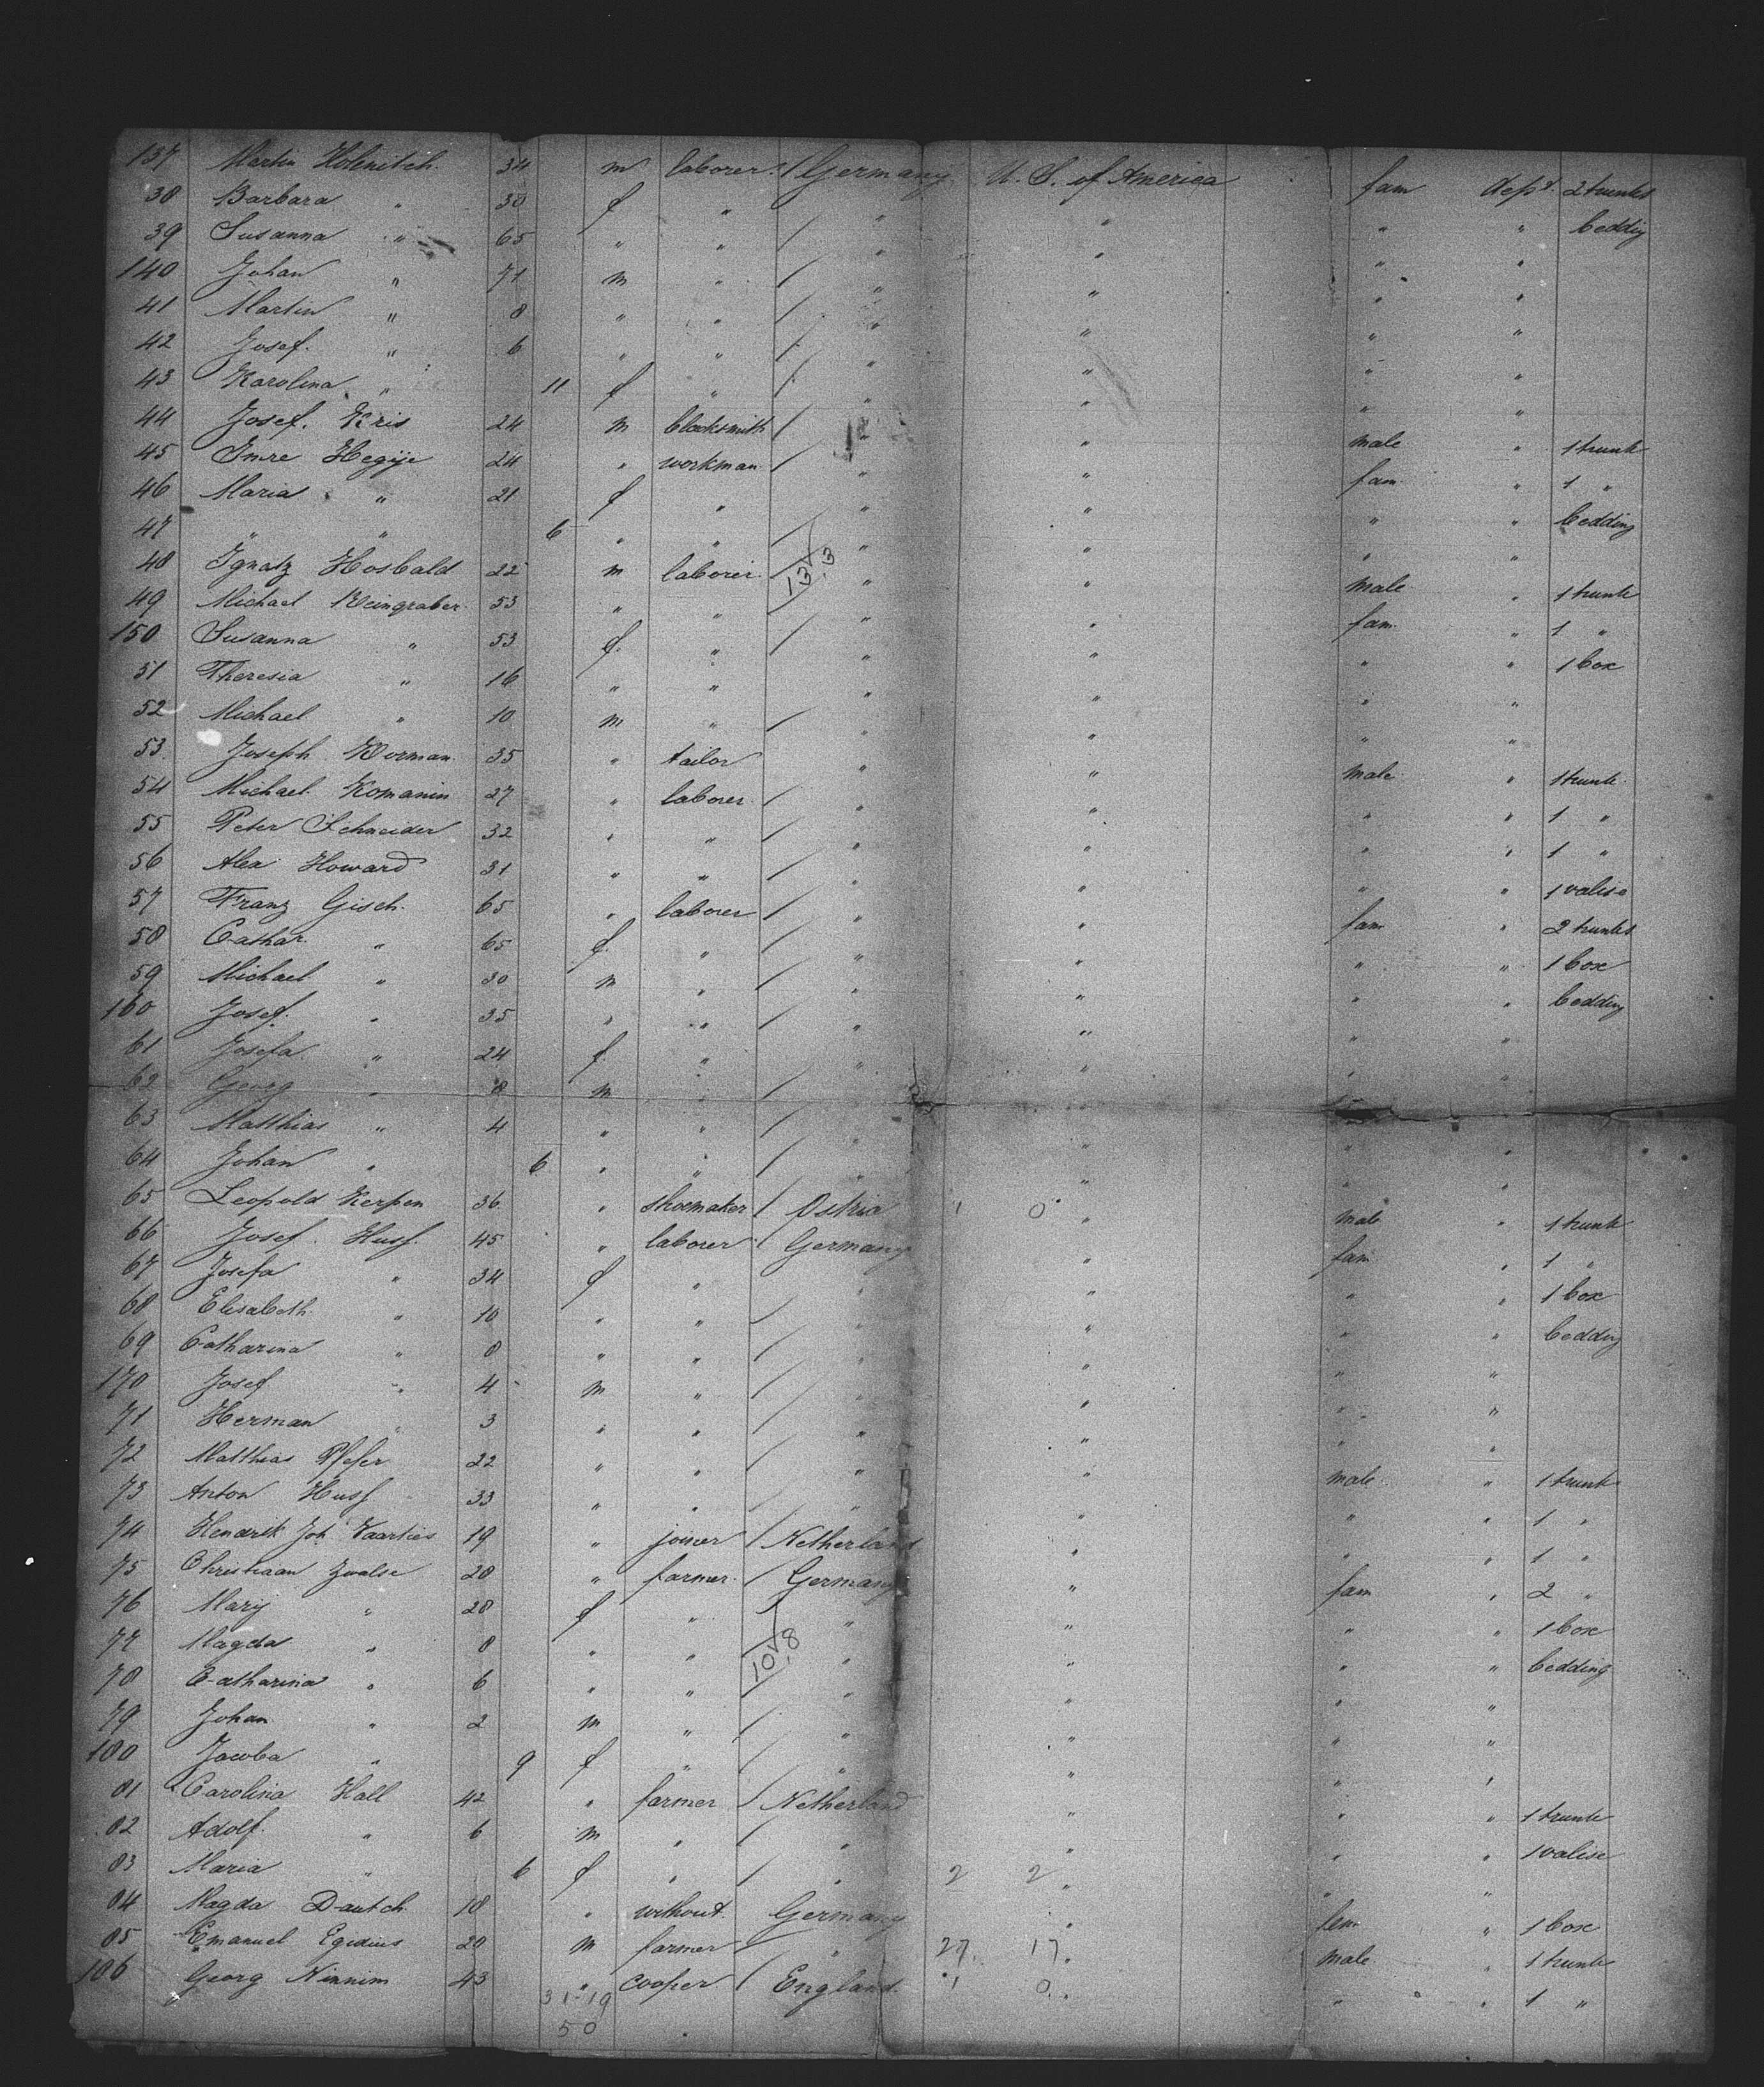 137 Martin Holenitch. 34 m laborer. / Germany U. S. of America fam dept. 2 trunks
38 Barbara " 30 f " / " " " " bedding
39 Susanna " 65 " " / " " " "
140 Johan " 71 m " / " " " "
41 Martin " 8 " " / " " " "
42 Josef. " 6 " " / " " " "
43 Karolina " 11 f " / " " " "
44 Josef. Kris 24 m blacksmith / " " male " 1 trunk
45 Imre Hegije 24 " workman / " " fam " 1 "
46 Maria " 21 f " " " " " bedding
47 " " 6 " " / " " " "
48 Ignatz Hosbald 22 m laborer. 13.3 " " male " 1 trunk
49 Michael Weingraber 53 " " / " " fam. " 1 "
150 Susanna " 53 f. " / " " " " 1 box
51 Theresia " 16 " " " " " "
52 Michael " 10 m " / " " " "
53 Joseph Worman 35 " tailor " " male " 1 trunk
54 Michael. Komanin 27 " laborer / " " " " 1 "
55 Peter Schneider 32 " " / " " " " 1 "
56 Alex Howard 31 " " / " " " " 1 valise
57 Franz Gisch. 65 " laborer / " " fam " 2 trunks
58 Cathar. " 65 f. " / " " " " 1 box
59 Michael " 30 m " / " " " " bedding
160 Josef. " 35 " " / " " " "
61 Josefa " 24 f " " " " "
62 Georg " 8 m " / " "
63 Matthias " 4 " " / " " " "
64 Johan " 6 " " / " " " "
65 Leopold Kerpen 36 " shoemaker / Ostria 1 0 " male " 1 trunk
66 Josef. Huss. 45 " laborer / Germany " fam " 1 "
67 Josefa " 34 f " " " " " 1 box
68 Elisabeth " 10 " " / " " " " bedding
69 Catharina " 8 " " / " " " "
170 Josef " 4 m " / " " " "
71 Herman " 3 " " / " " " "
72 Matthias Pfefer 22 " " / " " male " 1 trunk
73 Anton Huss 33 " " / " " " " 1 "
74 Hendrik Joh Vaarties 19 " joiner / Netherland " " " 1 "
75 Christiaan Zwalse 28 " farmer. / Germany " fam " 2 "
76 Marij " 28 f " / " " " " 1 box
77 Magda " 8 " " 10.8 " " " " bedding
78 Catharina " 6 " " / " " " "
79 Johan " 2 m " / " " " "
180 Jacoba " 9 f " / " " " "
81 Carolina Hall 42 " farmer / Netherland " " " 1 trunk
82 Adolf. " 6 m " / " " " " 1 valise
83 Maria " 6 f " / " 2 2 " " "
84 Magda Dautch 18 " without. Germany " fem " 1 box
85 Emanuel Egidius 20 m farmer / " 27. 17. male " 1 trunk
186 Georg Ninnim 43 " cooper / England. 1 0. " " " 1 "
31-19
50